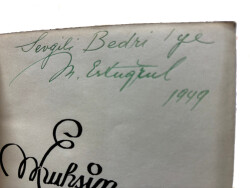 Sevgili Bedri 'ye
M. Ertuğrul
1949
Muhsin